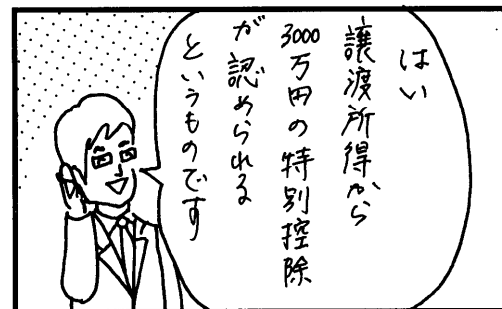 はい
譲渡所得から
3000万円の特別控除
が認められる
というものです